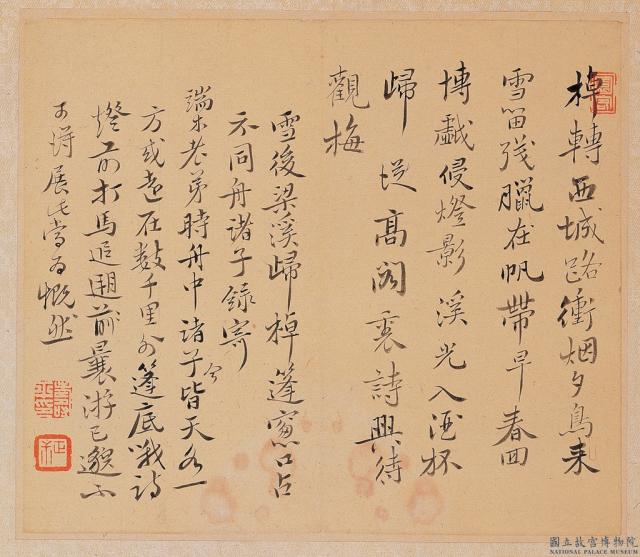 棹轉西城路衝烟夕鳥来
雪留殘臘在帆帶早春回
博戲侵燈影溪光入酒杯
歸從高閣裏詩興待
觀梅
雪後梁溪歸棹篷窗口占
示同舟諸子錄寄
瑞木老弟時舟中諸子皆天各一
方或遠在數千里外篷底戰詩
燈前打馬追遡前曩游已邈不
可得展此當為慨然
國立故宮博物院
NATIONAL PALACE MUSEUM